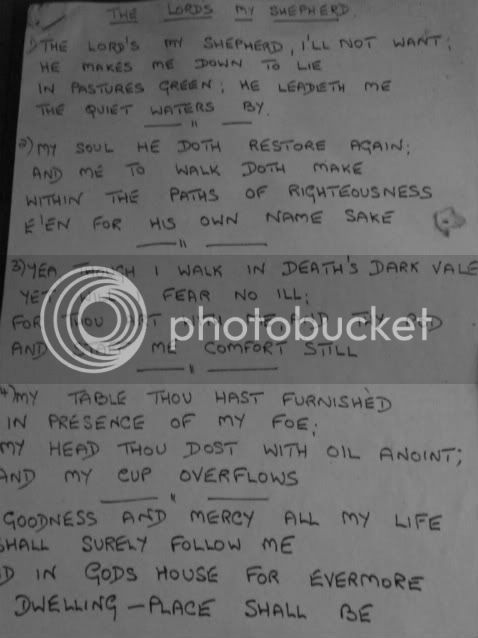 THE LORDS MY SHEPHERD.
1) THE LORD'S MY SHEPHERD, I'LL NOT WANT;
HE MAKES ME DOWN TO LIE
IN PASTURES GREEN; HE LEADETH ME
THE QUIET WATERS BY.
2) MY SOUL HE DOTH RESTORE AGAIN;
AND ME TO WALK DOTH MAKE
WITHIN THE PATHS OF RIGHTEOUSNESS
E'EN FOR HIS OWN NAME SAKE
3) YEA THOUGH I WALK IN DEATH'S DARK VALE
YET FEAR NO ILL;
FOR THOU ART WITH ME AND THY ROD
photobucket
AND STAFF ME COMFORT STILL
4) MY TABLE THOU HAST FURNISHÈD
IN PRESENCE OF MY FOE;
MY HEAD THOU DOST WITH OIL ANOINT;
AND MY CUP OVERFLOWS
GOODNESS AND MERCY ALL MY LIFE
SHALL SURELY FOLLOW ME
IN GODS HOUSE FOR EVERMORE
DWELLING - PLACE SHALL BE